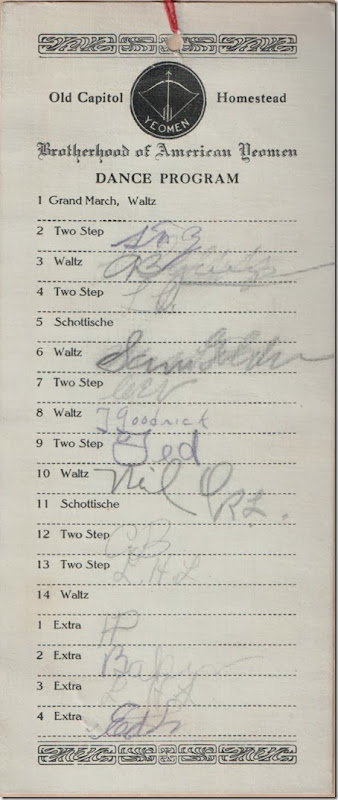 Old Capitol Homestead
YEOMEN
Brotherhood of American Yeomen
DANCE PROGRAM
1 Grand March, Waltz
2 Two Step
3 Waltz
4 Two Step
5 Schottische
6 Waltz
7 Two Step
8 Waltz J Goodrick
9 Two Step Ted
10 Waltz
11 Schottische RL.
12 Two Step C.B
13 Two Step L.H.L.
14 Waltz
1 Extra
2 Extra
3 Extra L H L
4 Extra